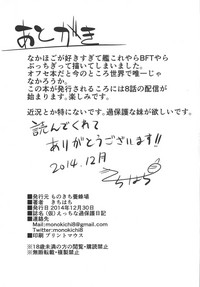 あとがき
なかほごが好きすぎて艦これやらBFTやら
ぶっちぎって描いてしまいました。
オフセ本だと今のところ世界で唯一じゃ
なかろうか。
この本が発行されるころには8話の配信が
始まります。楽しみです。
近況とか特にないです。過保護な妹が欲しいです。
読んでくれて
ありがとうございます!!
2014.12月
きちはち
■発行元 ものきち養蜂場
■著者 きちはち
■発行日 2014年12月30日
■誌名 (仮)えっちな過保護日記
■連絡先
Mail: monokichi6@
Twitter:monokichi8
■印刷 プリントマウス
※18歳未満の方の閲覧・購読禁止
※無断転載・複製禁止